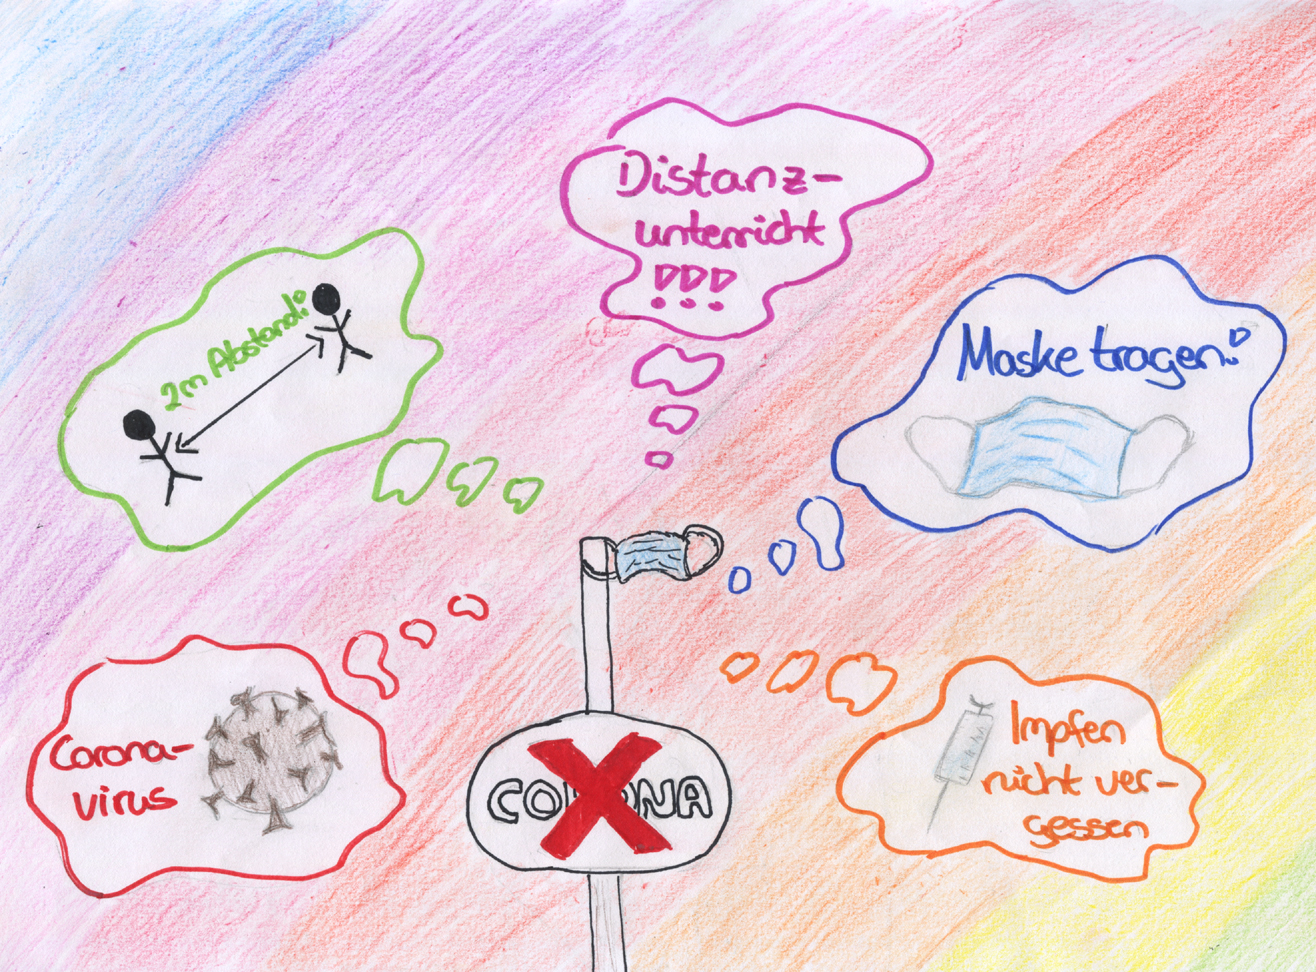 Distanz-
unterricht
!!!
2m Abstand!
Maske tragen!
Corona-
virus
CORONA
Impfen
nicht ver-
gessen